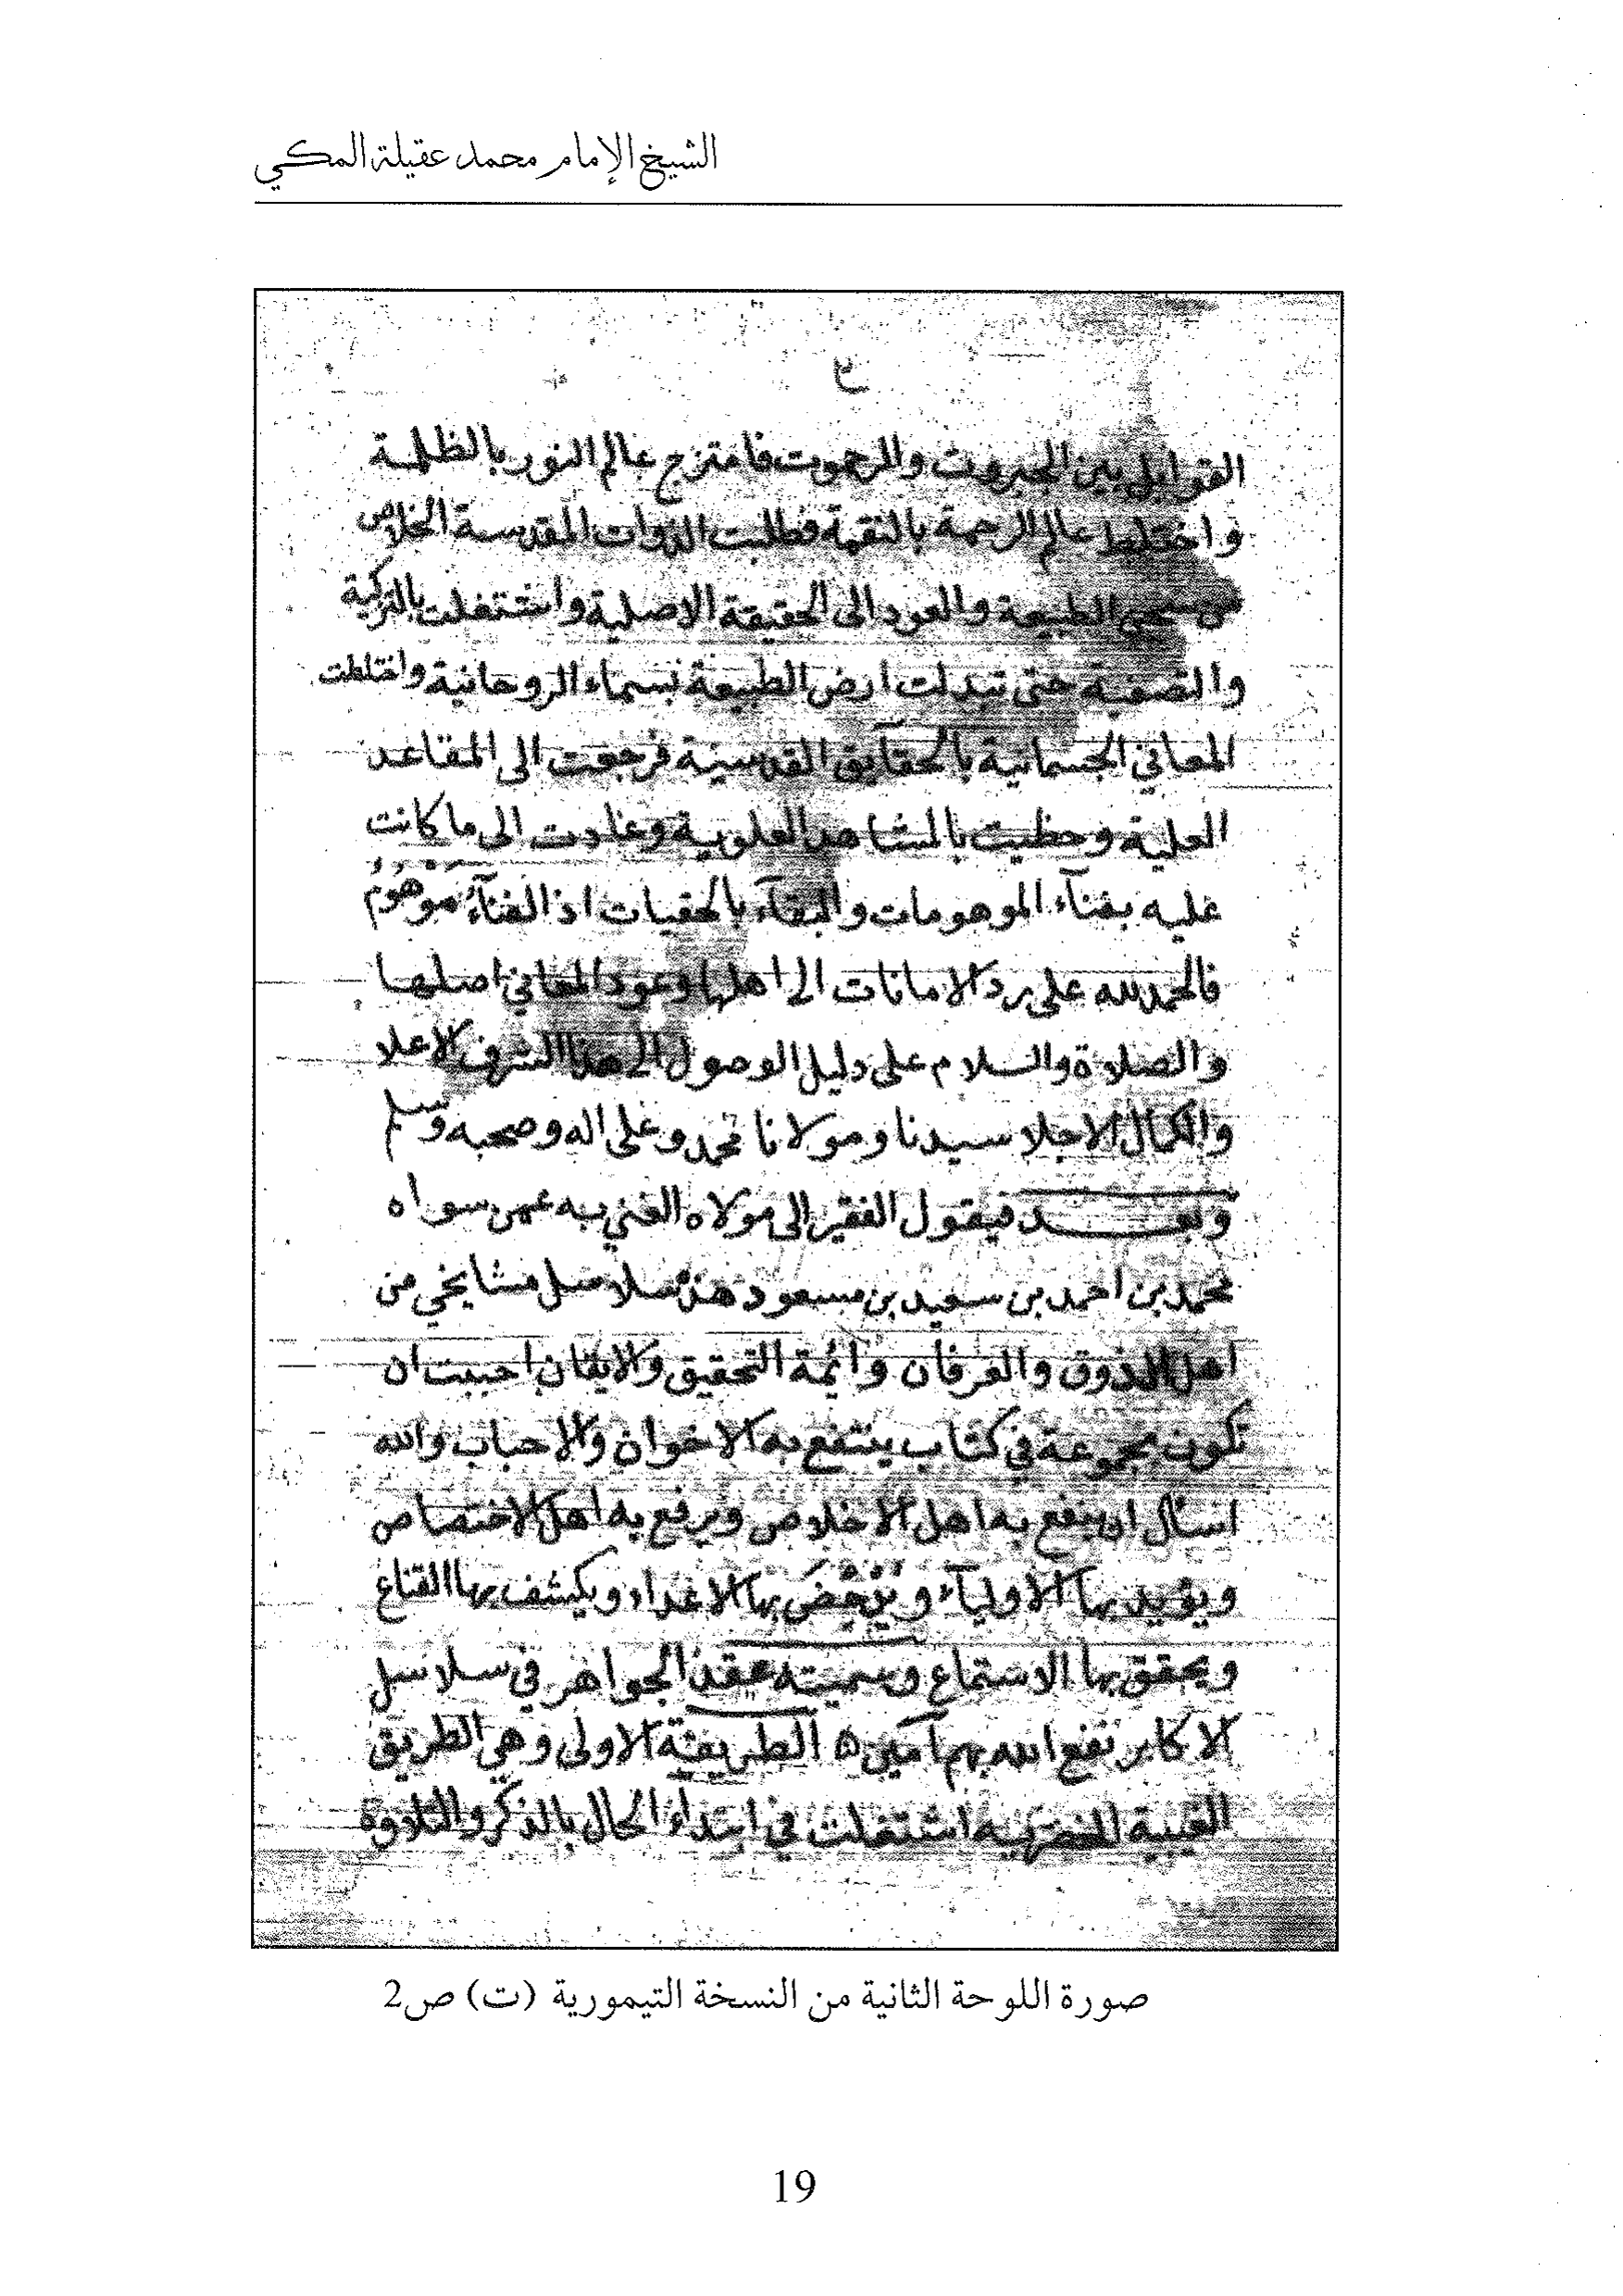 الشيخ الإمام محمد عقيلة المكي
٢
القوابل بين الجبروت والرحموت فامتزج عالم النور بالظلمة
واختلط عالم الرحمة بالنقمة فطلبت الذوات المقدسة الخلاص
من سجن الطبيعة والعود الى الحقيقة الاصلية واشتغلت بالتزكية
والتصفية حتى تبدلت ارض الطبيعة بسماء الروحانية واختلطت
المعاني الجسمانية بالحقايق القدسية فرجعت الى المقاعد
العلية وحظيت بالمشاهد العلوية وعادت الى ما كانت
عليه بفنآء الموهومات والبقآء بالحقيات اذ الفنآء مَوْهُومُ
فالحمد لله على رد الامانات الى اهلها وعود المعاني اصلها
والصلاة والسلام على دليل الوصول الى هذا الشرف الاعلا
والكمال الاجلا سيدنا ومولانا محمد وعلى اله وصحبه وسلم
وبعد فيقول الفقير الى مولاه الغني به عمن سواه
محمد بن احمد بن سعيد بن مسعود هذه سلاسل مشايخي من
اهل الذوق والعرفان وائمة التحقيق والايقان احببت ان
تكون مجموعة في كتاب ينتفع به الاخوان والاحباب والله
اسأل ان ينفع به اهل الاخلاص ويرفع به اهل الاختصاص
ويؤيد بها الاوليآء و بها الاعداء ويكشف بها القناع
ويحقق بها الاستماع وسميته عقد الجواهر في سلاسل
الاكابر نفع الله بهم آمين ه الطريقة الاولى وهي الطريق
الغيبية الخضرية اشتغلت في ابتداء الحال بالذكر والتلاوة
صورة اللوحة الثانية من النسخة التيمورية (ت) ص2
19